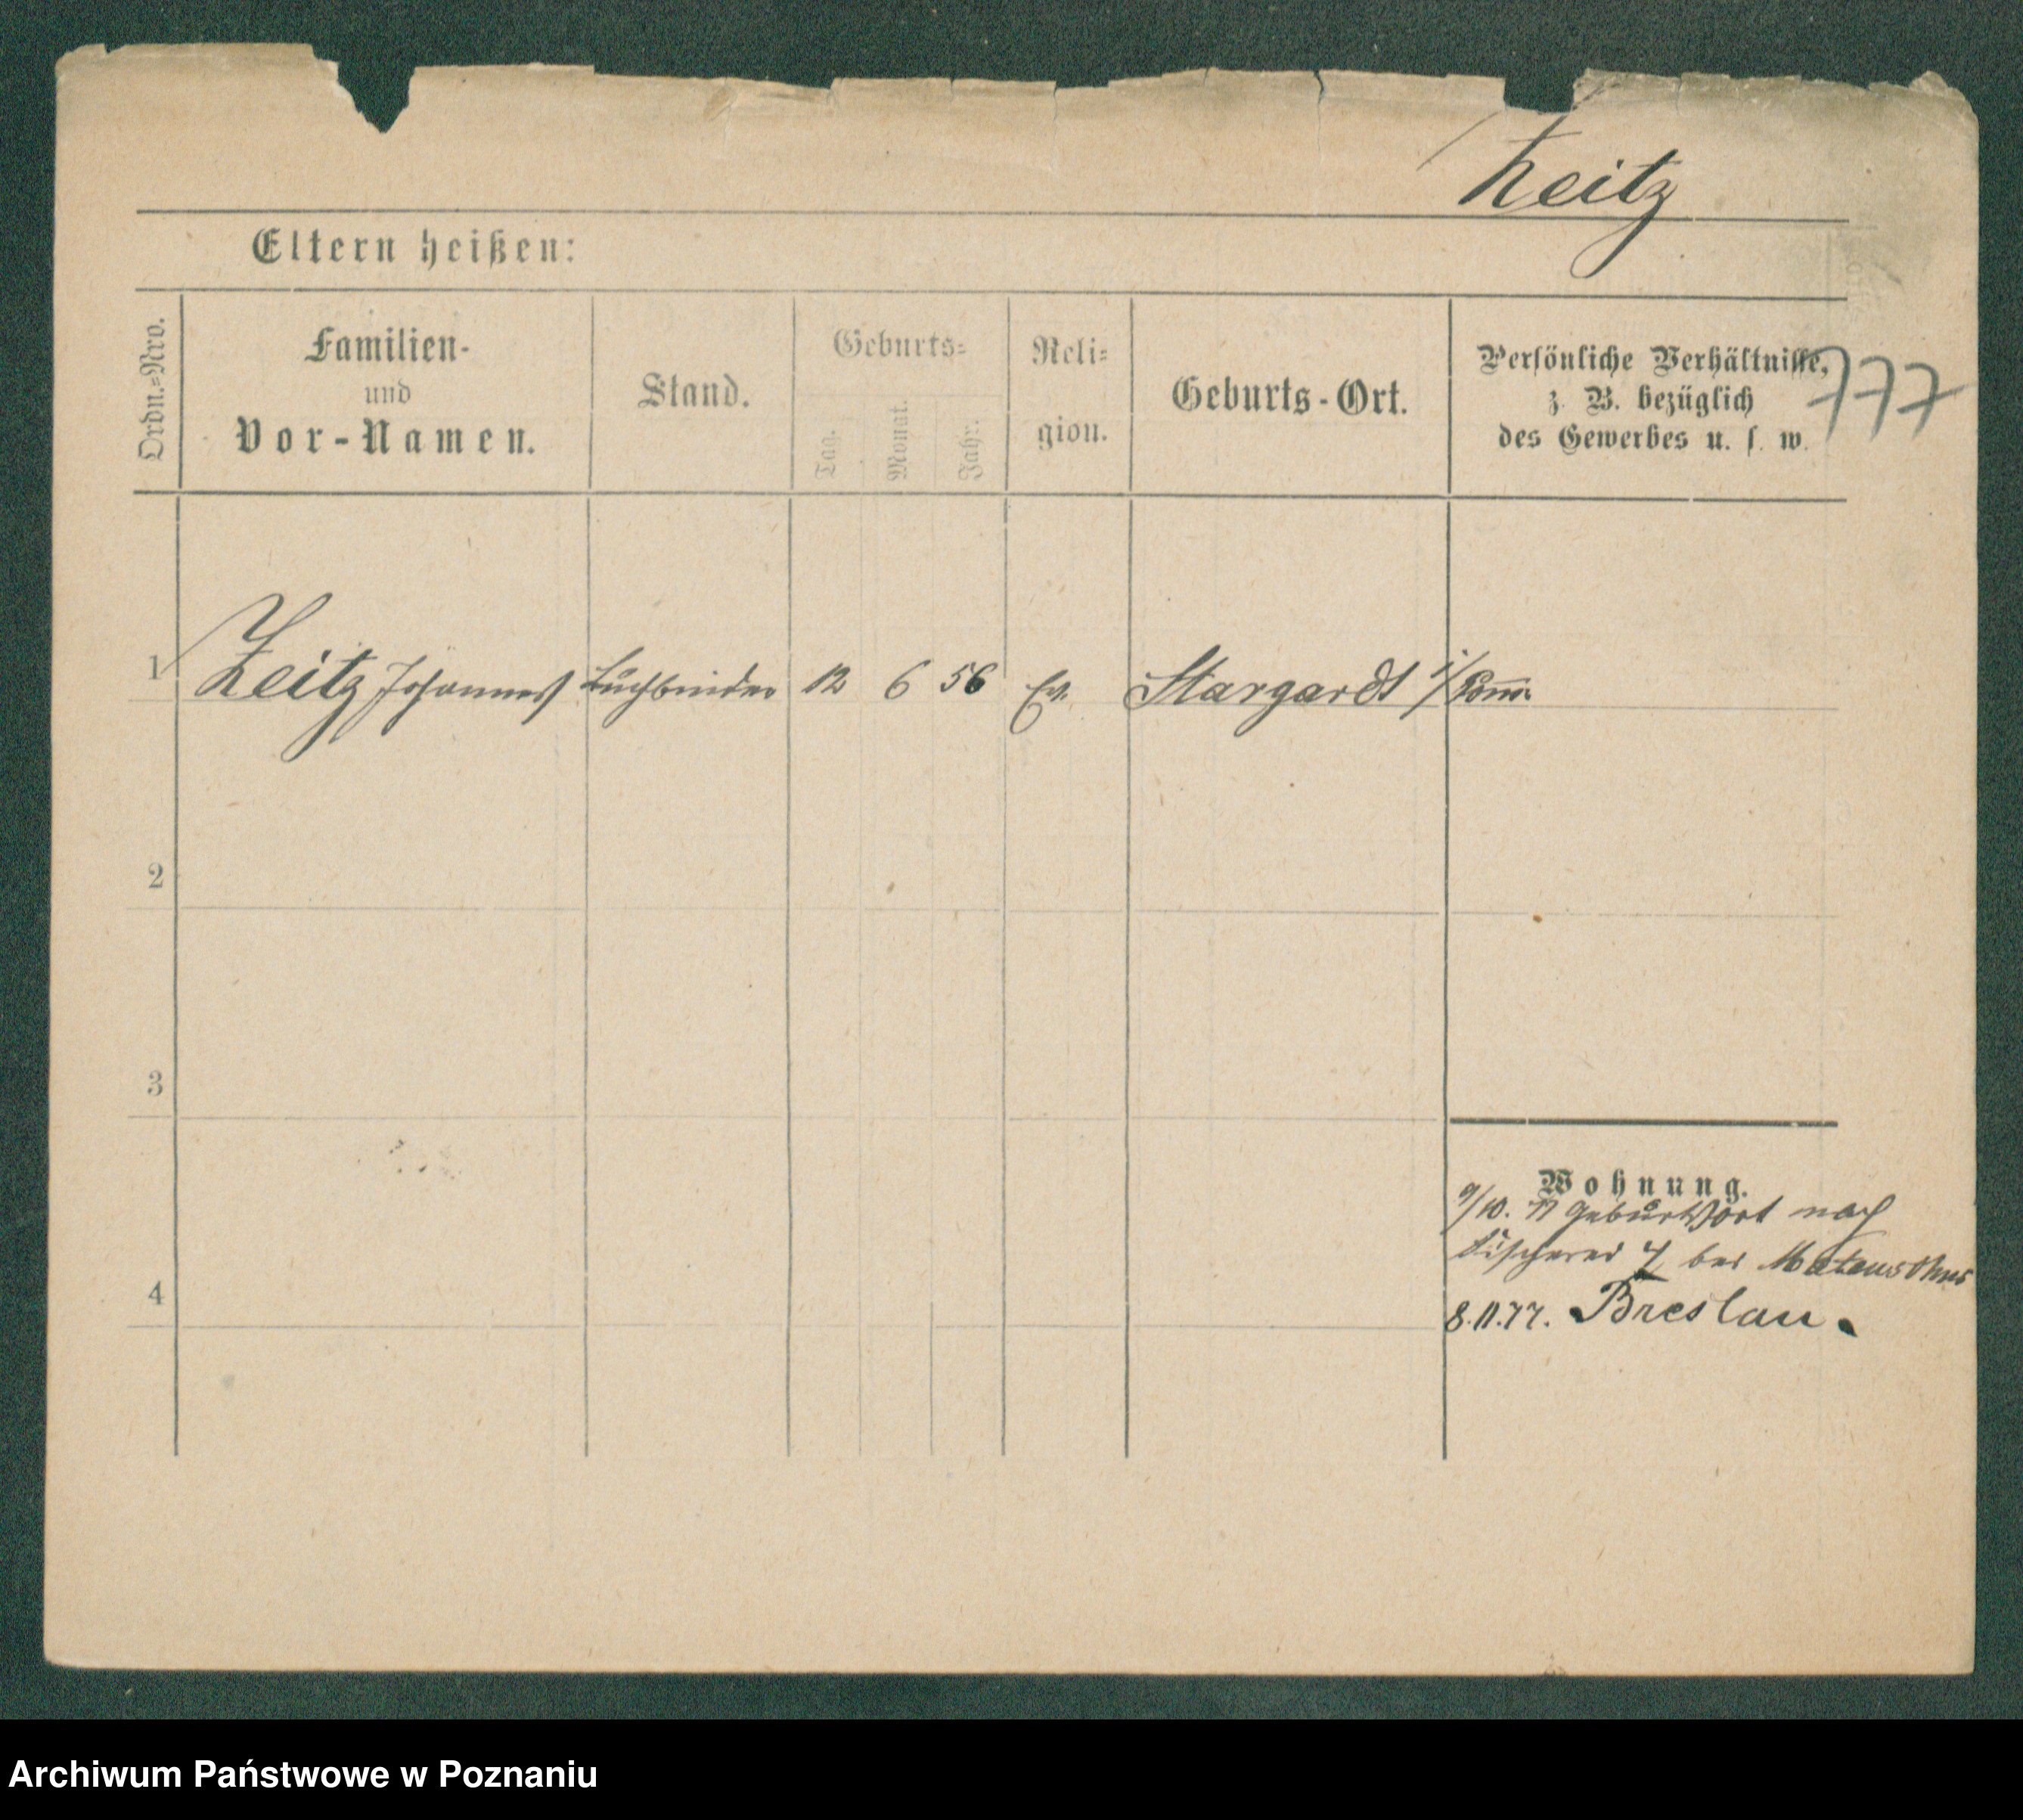 Zeitz
Eltern heißen:
Ordn.=Nro.
Familien-
und
Vor-Namen.
Stand.
Geburts=
Tag.
Monat.
Jahr.
Reli=
gion.
Geburts-Ort.
Persönliche Verhältnisse,
z. B. bezüglich
des Gewerbes u. s. w.
777
1 Zeitz Johannes Buchbinder 12 6 56 Ev. Stargardt i/Pomm.
2
3
Wohnung.
9/10. 77 Geburtsort nach
Fischerei 4 bei
4
8.11.77. Breslau.
Archiwum Państwowe w Poznaniu